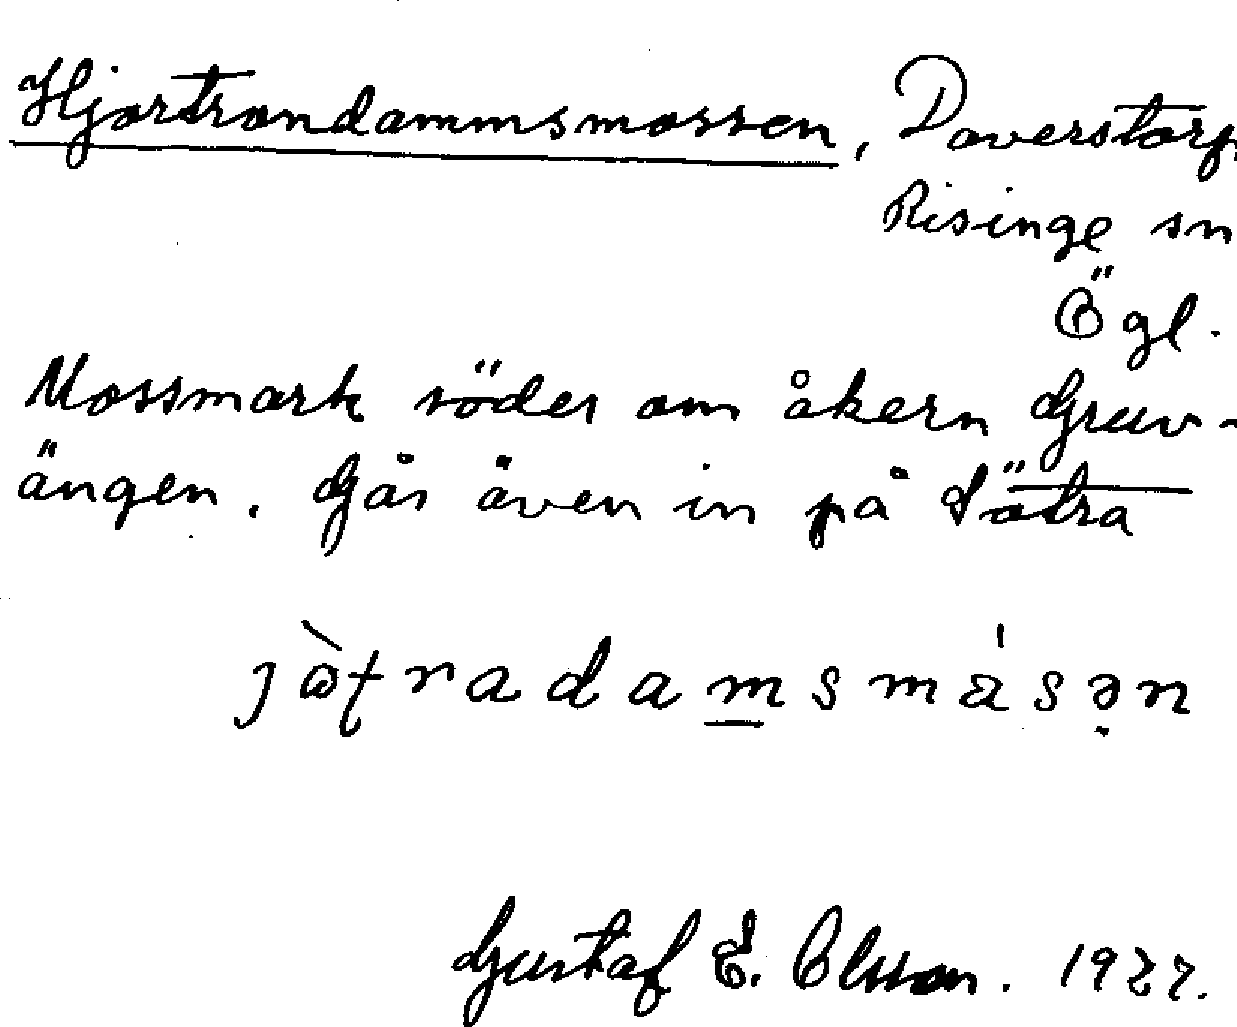 Hjortrondammsmossen, Doverstorp,
Risinge sn
Ögl.
Mossmark söder om åkern Gruv-
ängen. Går även in på Sätra
Gustaf E. Olsson. 1927.